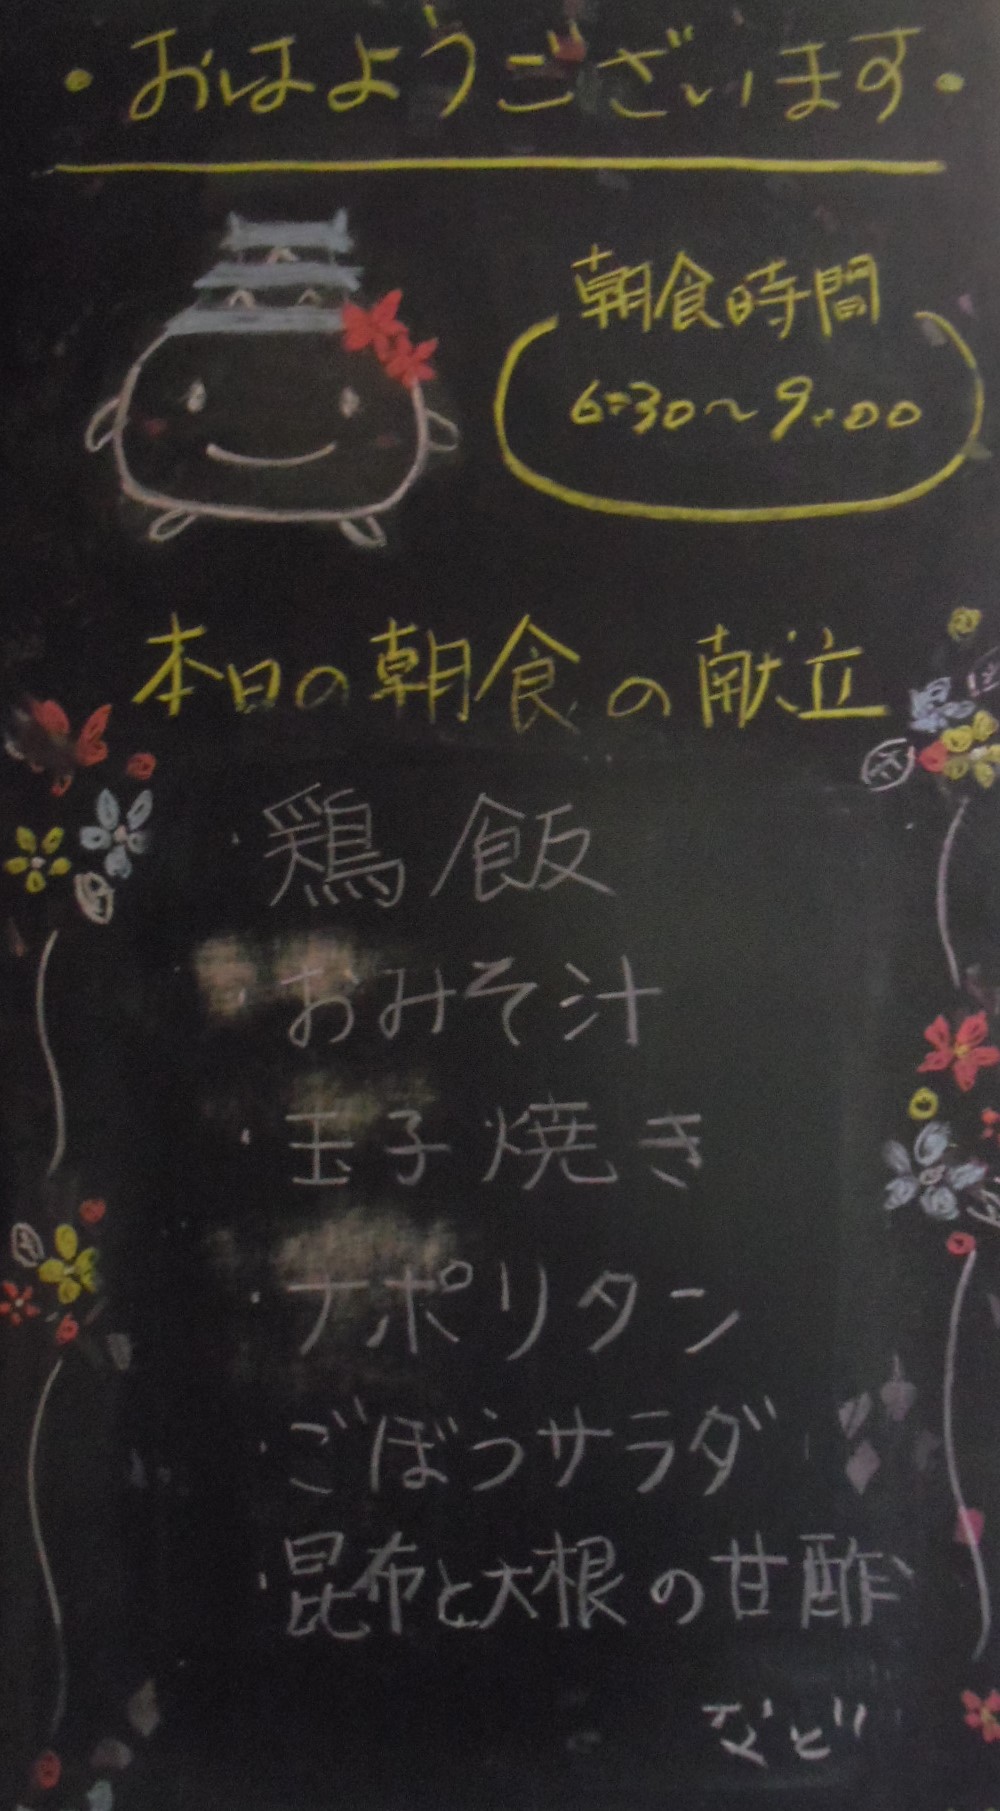 ・おはようございます・
朝食時間
6:30～9:00
本日の朝食の献立
・鶏飯
・おみそ汁
・玉子焼き
・ナポリタン
・ごぼうサラダ
・昆布と大根の甘酢
など!!